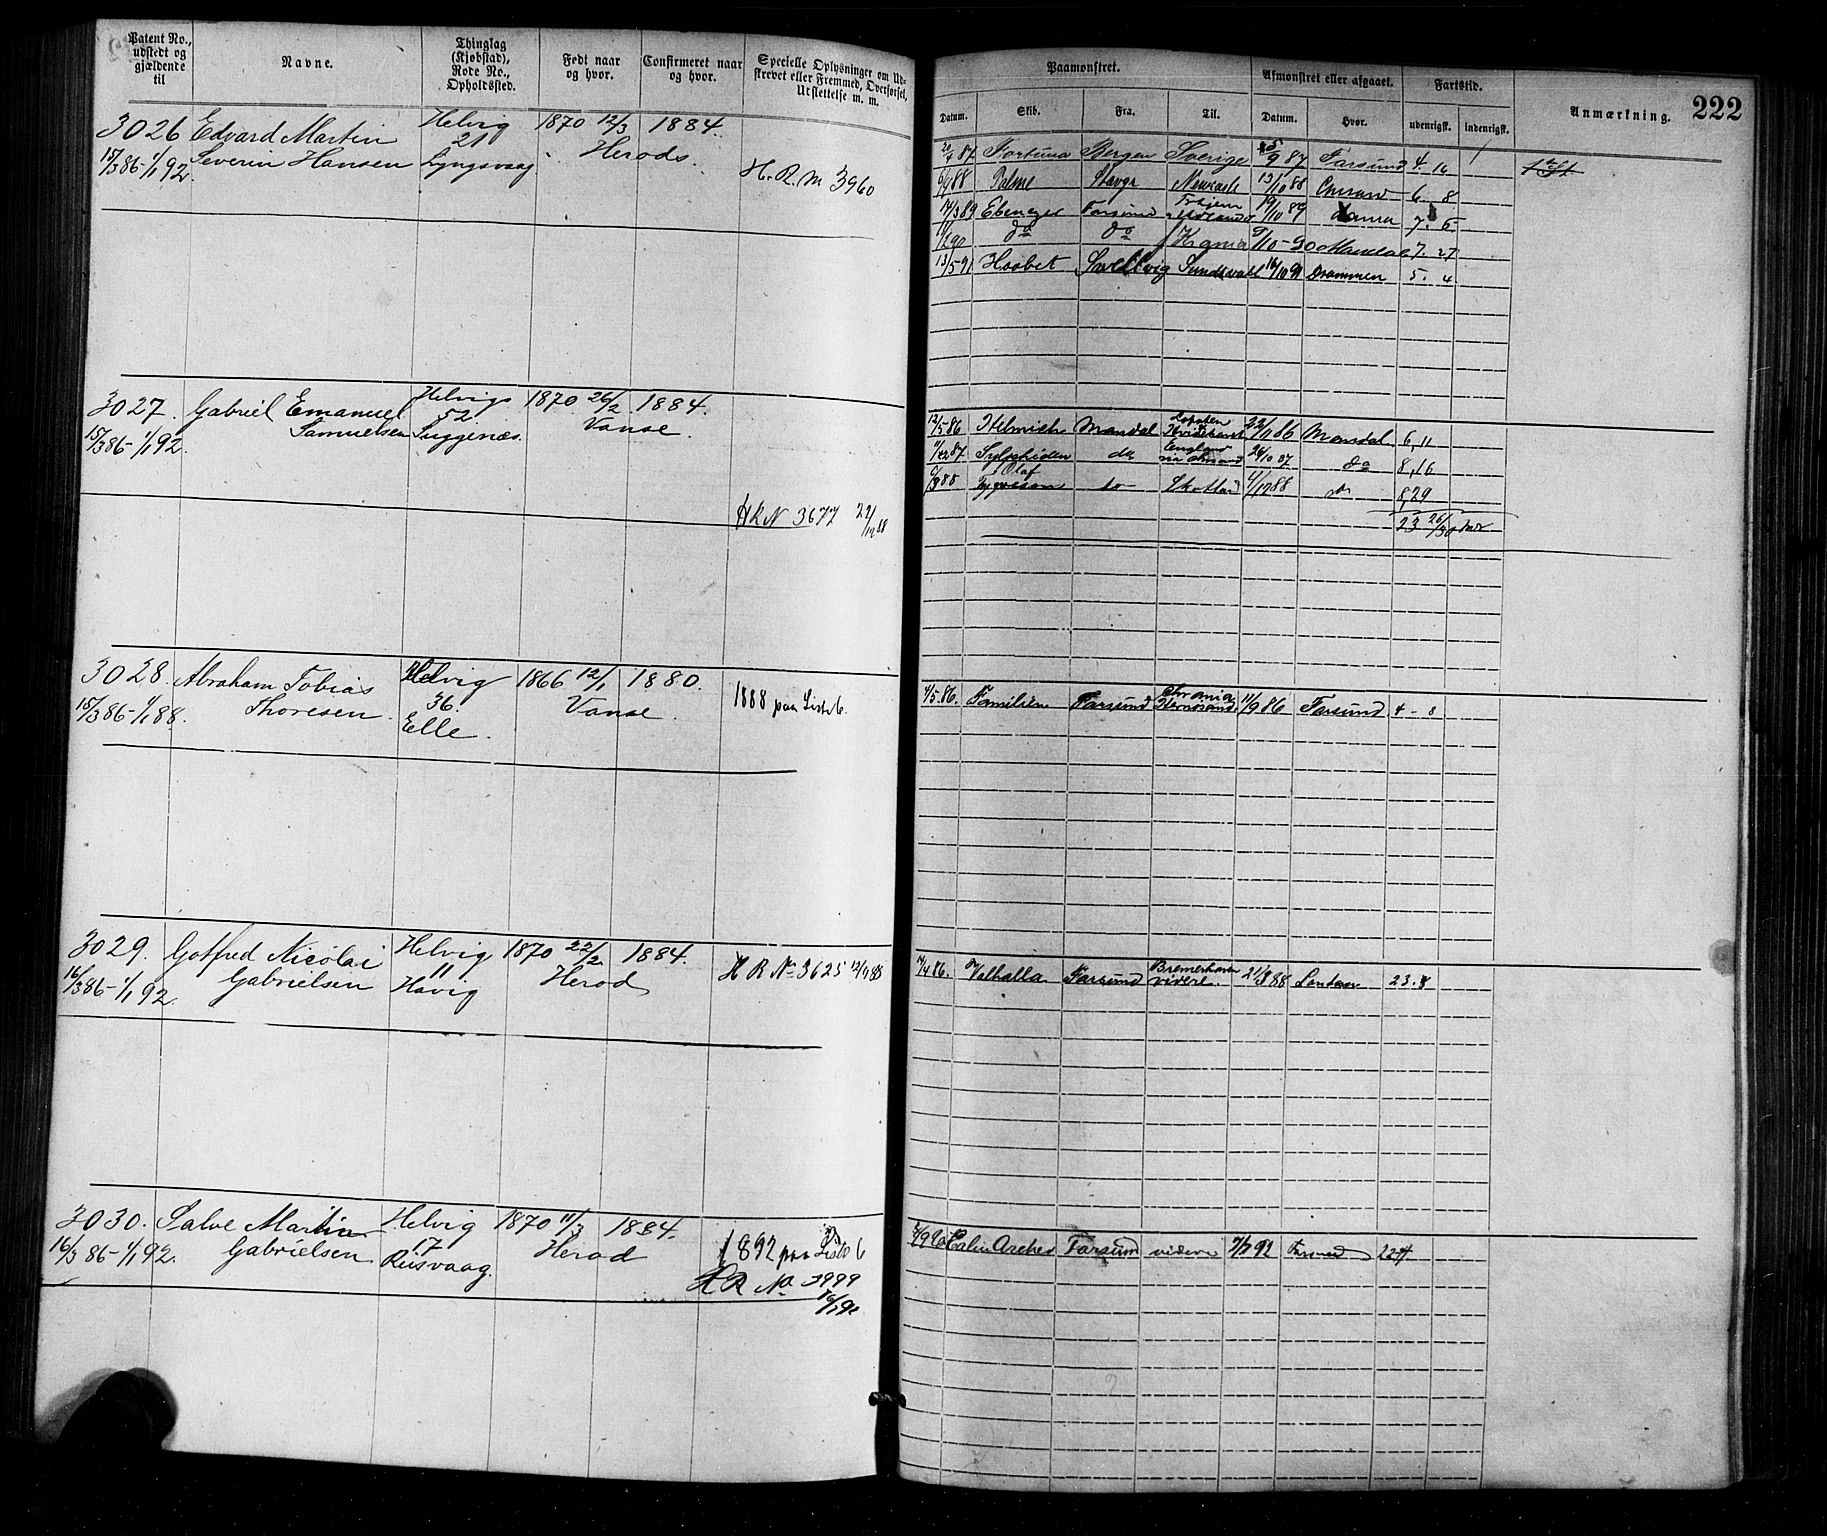 Patent No., udstedt og gjældende til
Navne.
Thinglag (Kjøbstad), Rode No., Opholdssted.
Født naar og hvor.
Confirmeret naar og hvor.
Specielle Oplysninger om Udskrevet eller Fremmed, Overførsel, Udslettelse m. m.
Paamønstret.
Afmønstret eller afgaaet.
Fartstid.
Anmærkning.
222
Datum.
Skib.
Fra.
Til.
Datum.
Hvor.
udenrigsk.
indenrigsk.
3026 Edvard Martin Helvig 1870 12/3 1884.
Severin Hansen 21 Herods.
15/3 86-1/1 92. Lyngsvaag
H. R. N 3960
20/4 87 Fortuna Bergen Sverige 5/9 87 Farsund 4. 16
6/4 88 Palme Stavgr Newcastle 13/10 88 6. 8
14/3 89 Ebenezer Farsund 19/10 89 7. 5
90 do do Krania 9/10-90 Mandal 7. 27
13/5 91 Haabet Snellvig Sundsvall 16/10 91 Drammen 5. 4
3027. Gabriel Emanuel Helvig 1870 26/2 1884.
Samuelsen 52 Vanse
15/3 86-1/1 92. Tuggenæs.
HRN 3677 22/12 88
12/5 86 Helmich Mandal 22/11 86 Mandal 6,11
87 Sylphiden do England 26/10 87 do 8,16
88 Olaf Trygveson do Skotland 88 do 8,29
23 26/30 mdr
3028. Abraham Tobias Helvig 1866 12/1 1880.
Thoresen 36. Vanse
15/3 86-1/1 88. Elle.
1888 paa Liste 6.
4/5 86. Familien Farsund Chrania Hernøsand. 11/9 86 Farsund 4 - 8
3029. Gotfred Nicolai Helvig 1870 22/2 1884.
Gabrielsen 11 Herod
16/3 86-1/1 92. Havig
H R No 3625 12/9 88
86. Valhalla Farsund Bremerhaven videre. 21/8 88 London 23. 8
3030. Salve Martin Helvig 1870 11/3 1884.
Gabrielsen 17 Herod
16/3 86-1/1 92. Reisvaag.
1892 paa Liste 6
H R No 3999
Farsund videre 7/7 92 22